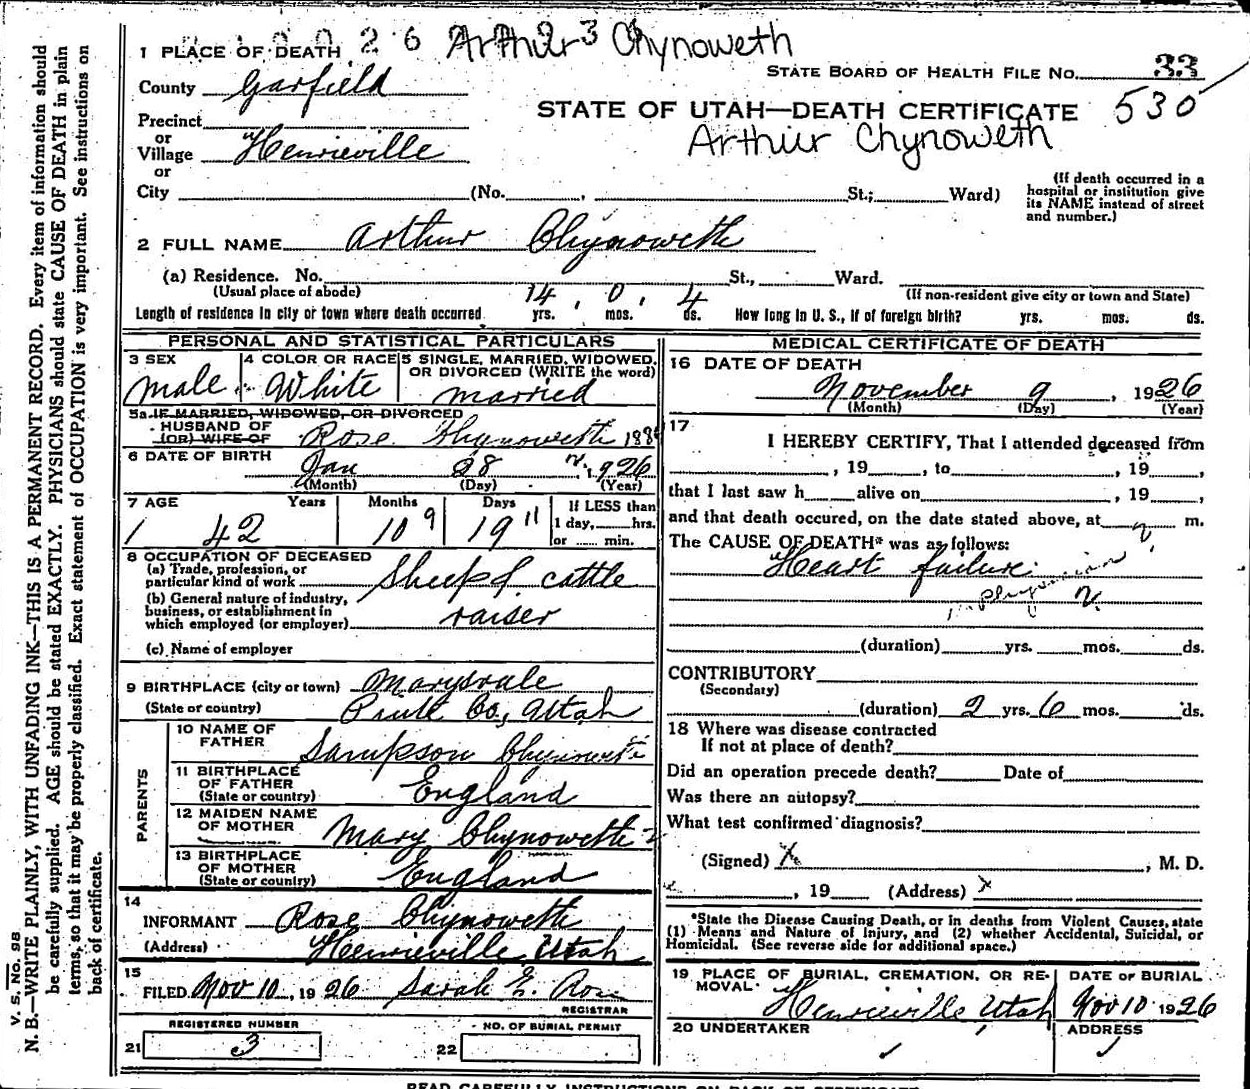 2 6 Arthur 3 Chynoweth
1 PLACE OF DEATH
STATE BOARD OF HEALTH FILE No. 33
County Garfield
STATE OF UTAH—DEATH CERTIFICATE 530
Precinct
or
Village Henrieville
Arthur Chynoweth
or
City (No. , St.; Ward)
(If death occurred in a
hospital or institution give
its NAME instead of street
and number.)
2 FULL NAME Arthur Chynoweth
(a) Residence. No. St., Ward.
(Usual place of abode)
(If non-resident give city or town and State)
Length of residence in city or town where death occurred 14 yrs. 0 mos. 4 ds. How long in U. S., if of foreign birth? yrs. mos. ds.
PERSONAL AND STATISTICAL PARTICULARS
3 SEX male
4 COLOR OR RACE White
5 SINGLE, MARRIED, WIDOWED, OR DIVORCED (WRITE the word) married
5a IF MARRIED, WIDOWED, OR DIVORCED
HUSBAND OF
(OR) WIFE OF Rose Chynoweth 188
6 DATE OF BIRTH Jan 28 1926
(Month) (Day) (Year)
7 AGE Years Months Days If LESS than
1 day, hrs.
or min.
42 10 9 19 11
8 OCCUPATION OF DECEASED
(a) Trade, profession, or
particular kind of work Sheep & cattle
(b) General nature of industry,
business, or establishment in
which employed (or employer) raiser
(c) Name of employer
9 BIRTHPLACE (city or town) Marysvale
(State or country) Piute Co, Utah
PARENTS
10 NAME OF
FATHER Sampson Chynoweth
11 BIRTHPLACE
OF FATHER
(State or country) England
12 MAIDEN NAME
OF MOTHER Mary Chynoweth
13 BIRTHPLACE
OF MOTHER
(State or country) England
14
INFORMANT Rose Chynoweth
(Address) Henrieville Utah
15
FILED Nov 10, 1926 Sarah E. Rose
REGISTRAR
REGISTERED NUMBER
21 3
NO. OF BURIAL PERMIT
22
MEDICAL CERTIFICATE OF DEATH
16 DATE OF DEATH
November 9, 1926
(Month) (Day) (Year)
17
I HEREBY CERTIFY, That I attended deceased from
, 19 , to , 19 ,
that I last saw h alive on , 19 ,
and that death occured, on the date stated above, at m.
The CAUSE OF DEATH* was as follows:
Heart failure
physician
(duration) yrs. mos. ds.
CONTRIBUTORY
(Secondary)
(duration) 2 yrs. 6 mos. ds.
18 Where was disease contracted
If not at place of death?
Did an operation precede death? Date of
Was there an autopsy?
What test confirmed diagnosis?
(Signed) X , M. D.
, 19 (Address) x
*State the Disease Causing Death, or in deaths from Violent Causes, state
(1) Means and Nature of Injury, and (2) whether Accidental, Suicidal, or
Homicidal. (See reverse side for additional space.)
19 PLACE OF BURIAL, CREMATION, OR RE-
MOVAL Henrieville, Utah
DATE OF BURIAL
Nov 10 1926
20 UNDERTAKER
ADDRESS
V. S. NO. 98
N. B.—WRITE PLAINLY, WITH UNFADING INK—THIS IS A PERMANENT RECORD. Every item of information should
be carefully supplied. AGE should be stated EXACTLY. PHYSICIANS should state CAUSE OF DEATH in plain
terms, so that it may be properly classified. Exact statement of OCCUPATION is very important. See instructions on
back of certificate.
READ CAREFULLY INSTRUCTIONS ON BACK OF CERTIFICATE